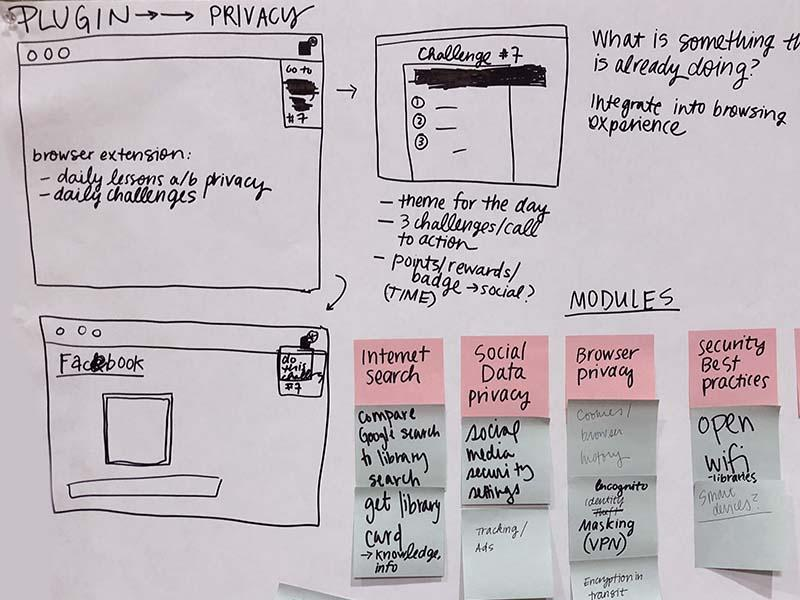 PLUGIN →→ PRIVACY
GO to
#7
browser extension:
- daily lessons a/b privacy
- daily challenges
Challenge #7
1
2
3
- theme for the day
- 3 challenges/call
to action
- points/rewards/
badge → social?
(TIME)
What is something th
is already doing?
Integrate into browsing
experience
Facebook
do
this
#7
MODULES
Internet
search
compare
Google search
to library
search
get library
card
→ knowledge,
info
Social
Data
privacy
social
media
security
settings
Tracking/
Ads
Browser
privacy
Cookies/
browser
history
Incognito
identity
theft
Masking
(VPN)
Encryption in
transit
security
Best
practices
open
wifi
-libraries
Smart
devices?